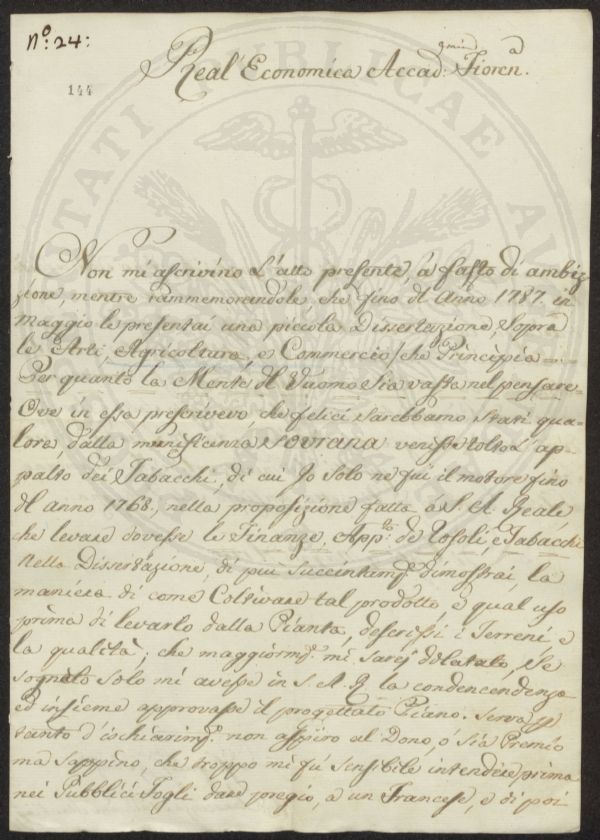 N.º 24:
144
Real' Economica Accad: Fioren.
Non mi ascrivino l'atto presente, a fasto di ambiz
zione, mentre rammemorandole che fino dl Anno 1787. in
Maggio le presentai una piccola Dissertazione Sopra
le Arti, Agricoltura, e Commercio, che Principia
Per quanto la Mente dl Vuomo Sia vasta nel pensare
Ove in essa prescrivevo, che felici Sarebbamo Stati qua-
lora, dalla munificenza SOVRANA venisse tolto l ap-
palto dei Tabacchi, di cui Io Solo ne fui il motore fino
dl anno 1768., nella proposizione fatta á S. A. Reale
che levare dovesse le Finanze, App.to de Rosoli, e Tabacchi
Nella Dissertazione, di piu Succintam.e dimostrai, la
maniera di come Coltivare tal prodotto, e qual uso
prima di levarlo dalla Pianta, descrissi i Terreni e
la qualità; che maggiorm.e mi Sarej dilatato, Se
sognato Solo mi avesse in S. A. R la condencendenza
ed insieme approvasse il progettato Piano. Serva p
tanto d'ischiarim.e non aspiro al Dono, ó Sia Premio
ma Sappino, che troppo mi fú Sensibile intendere prima
nei Pubblici Fogli dare pregio, a un Francese, e di poi